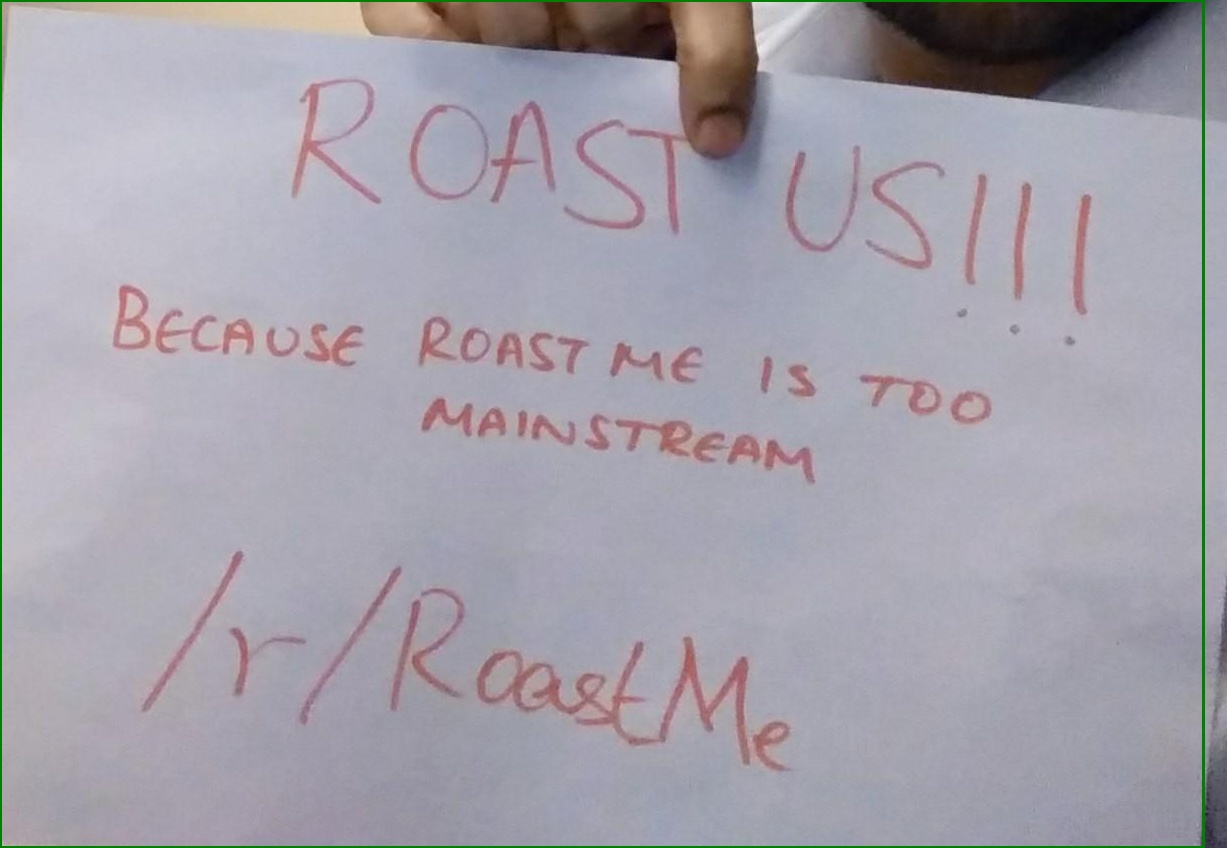 ROAST US!!!
BECAUSE ROAST ME IS TOO
MAINSTREAM
/r/RoastMe